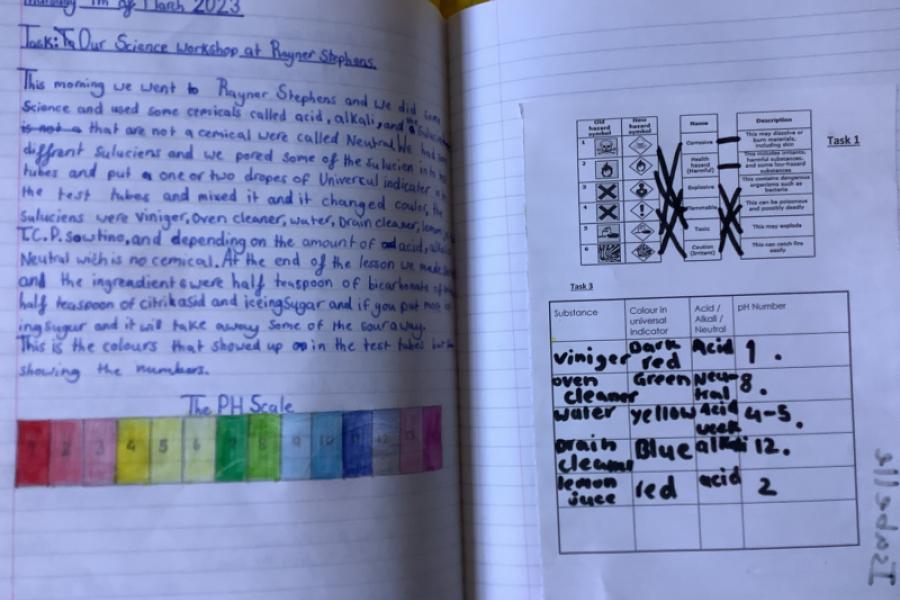 March 2023
Task: Our Science Workshop at Rayner Stephens.
This morning we went to Rayner Stephens and we did some
Science and used some cemicals called acid, alkali, and
is not a that are not a cemical were called Neutral. We had
diffrent suluciens and we pored some of the sulucien into
tubes and put a one or two dropes of Univercul indicator
the test tubes and mixed it and it changed
Suluciens were Viniger, Oven cleaner, water, Drain cleaner, lemon
T.C.P. and depending on the amount of acid,
Neutral witch is no cemical. At the end of the lesson we made
and the ingreadients were half teaspoon of bicarbonate of
half teaspoon of citrikasid and iceingsugar and if you put
ing sugur and it will take away some of the sour away.
This is the colours that showed up in the test tubes
showing the numbers.
The PH Scale
1 2 3 4 5 6 7 8 9 10 11 12 13
Old hazard symbol New hazard symbol Name Description
Task 1
1 Corrosive This may dissolve or burn materials, including skin
2 Health hazard (Harmful) This includes irritants, harmful substances, and some low-hazard substances
3 Explosive This contains dangerous organisms such as bacteria
4 Flammable This can be poisonous and possibly deadly
5 Toxic This may explode
6 Caution (Irritant) This can catch fire easily
Task 3
Substance Colour in universal indicator Acid / Alkali / Neutral pH Number
Viniger Dark red Acid 1.
oven cleaner Green Neutral 8.
water yellow Acid week 4-5.
Drain cleaner Blue alkali 12.
lemon juce red acid 2